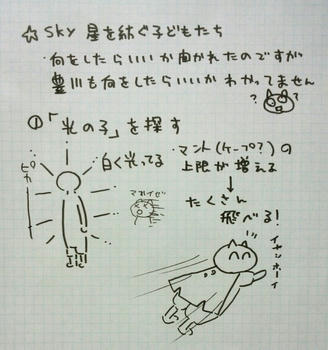 ☆ Sky 星を紡ぐ子どもたち
・何をしたらいいか聞かれたのですが
豊川も何をしたらいいかわかってません
? ?
①「光の子」を探す
白く光ってる
ピカー
マブイぜ
・マント(ケープ?)の
上限が増える
↓
たくさん
飛べる!
イヤッホーイ